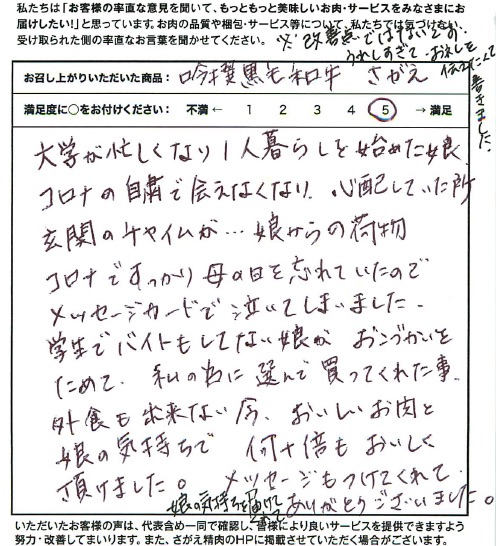 私たちは「お客様の率直な意見を聞いて、もっともっと美味しいお肉・サービスをみなさまにお
届けしたい!」と思っています。お肉の品質や梱包・サービス等について、私たちでは気づけない、
受け取られた側の率直なお言葉を聞かせてください。
※改善点ではないです…
うれしすぎて…お礼を
伝えたくて
書きました。
お召し上がりいただいた商品: 吟撰黒毛和牛 さがえ
満足度に○をお付けください: 不満 ← 1 2 3 4 5 → 満足
大学が忙しくなり1人暮らしを始めた娘、
コロナの自粛で会えなくなり、心配していた所
玄関のチャイムが…娘からの荷物
コロナですっかり母の日を忘れていたので
メッセージカードで泣いてしまいました。
学生でバイトもしてない娘が おこづかいを
ためて、私の為に選んで買ってくれた事、
外食も出来ない今、おいしいお肉と
娘の気持ちで 何十倍もおいしく
頂けました。メッセージもつけてくれて、
娘の気持ちを届けて
ありがとうございました。
いただいたお客様の声は、代表含め一同で確認し、皆様により良いサービスを提供できますよう
努力・改善してまいります。また、さがえ精肉のHPに掲載させていただく場合がございます。